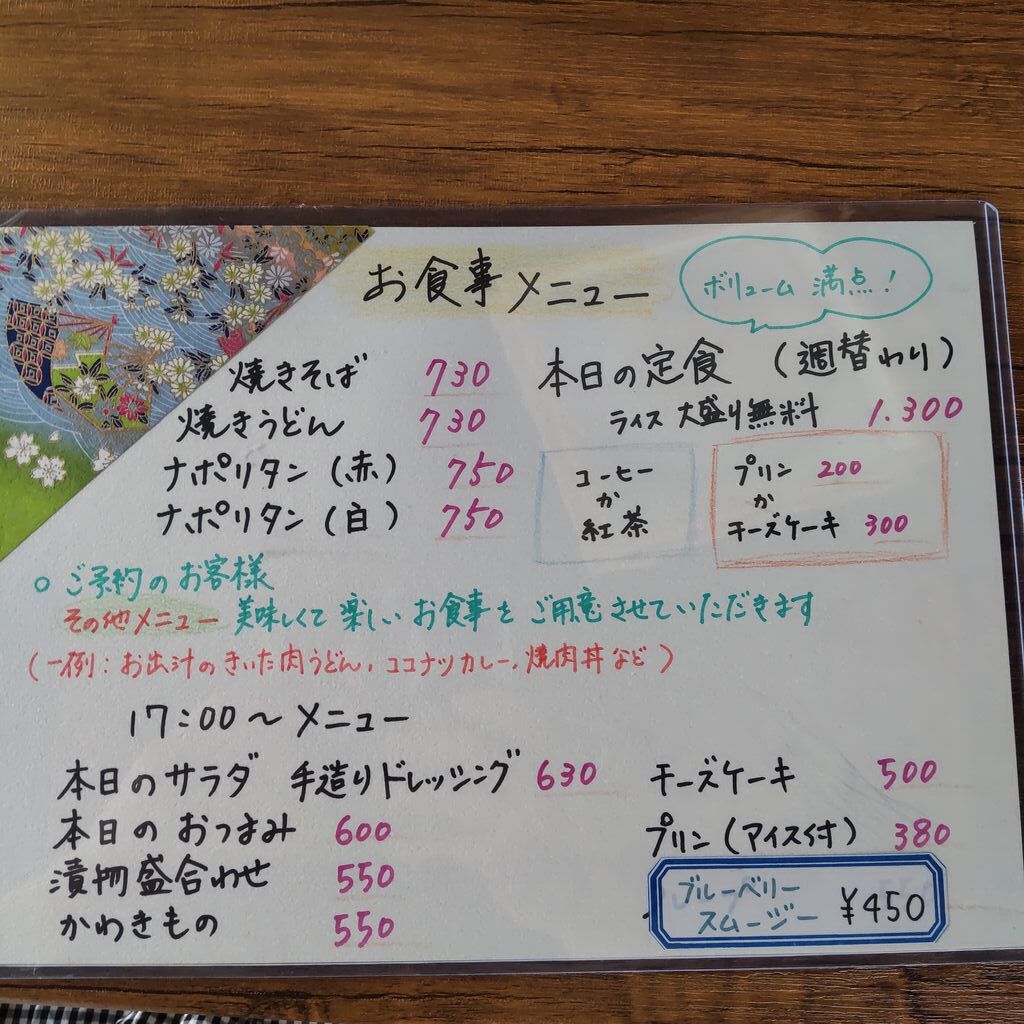 お食事メニュー
ボリューム満点!
焼きそば 730
焼きうどん 730
ナポリタン(赤) 750
ナポリタン(白) 750
本日の定食 (週替わり)
ライス大盛り無料 1.300
コーヒー
か
紅茶
プリン 200
か
チーズケーキ 300
○ご予約のお客様
その他メニュー 美味しくて楽しいお食事をご用意させていただきます
(一例:お出汁のきいた肉うどん,ココナツカレー,焼肉丼など)
17:00~メニュー
本日のサラダ 手造りドレッシング 630
本日のおつまみ 600
漬物盛合わせ 550
かわきもの 550
チーズケーキ 500
プリン(アイス付) 380
ブルーベリー
スムージー ¥450